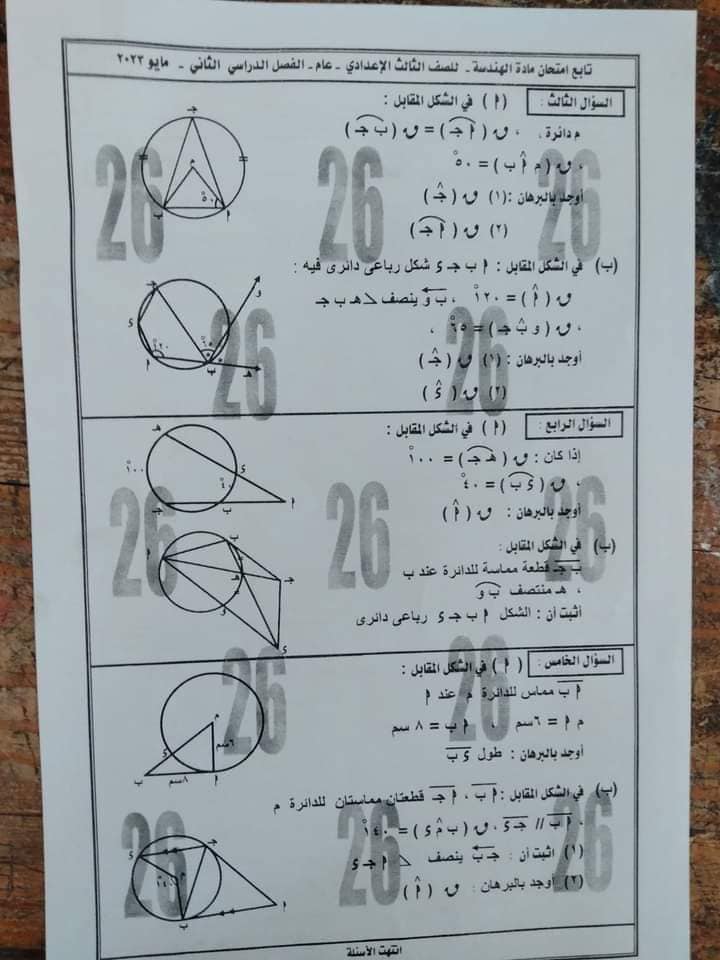 تابع امتحان مادة الهندسة - للصف الثالث الإعدادي - عام - الفصل الدراسي الثاني - مايو ٢٠٢٣
السؤال الثالث : ( أ ) في الشكل المقابل :
م دائرة ، ، ق ( أ جـ ) = ق ( ب جـ )
، ق ( م أ ب ) = ٥٠°
أوجد بالبرهان : (١) ق ( جـ )
(٢) ق ( أ جـ )
(ب) في الشكل المقابل : أ ب جـ ء شكل رباعى دائرى فيه :
ق ( أ ) = ١٢٠° ، ب و ينصف > هـ ب جـ
، ق ( و ب جـ ) = ٦٥° ،
أوجد بالبرهان : (١) ق ( جـ )
(٢) ق ( ء )
السؤال الرابع : ( أ ) في الشكل المقابل :
إذا كان : ق ( هـ جـ ) = ١٠٠°
، ق ( ء ب ) = ٤٠°
أوجد بالبرهان : ق ( أ )
(ب) في الشكل المقابل :
ب جـ قطعة مماسة للدائرة عند ب
، هـ منتصف ب و
أثبت أن : الشكل أ ب جـ ء رباعى دائرى
السؤال الخامس : ( أ ) في الشكل المقابل :
أ ب مماس للدائرة م عند أ
م أ = ٦سم ، أ ب = ٨ سم
أوجد بالبرهان : طول ء ب
(ب) في الشكل المقابل : أ ب ، أ جـ قطعتان مماستان للدائرة م
، أ ب // جـ ء ، ق ( ب م ء ) = ١٤٠°
(١) اثبت أن : جـ ب ينصف > أ جـ ء
(٢) أوجد بالبرهان : ق ( أ )
انتهت الأسئلة
جـ
م
٥٠°
ب
أ
جـ
و
ء
١٢٠°
٦٥°
أ
ب
هـ
هـ
١٠٠°
ء
٤٠°
جـ
ب
أ
ب
أ
هـ
جـ
و
ء
م
ء
٦سم
ب
٨سم
أ
ء
جـ
م
١٤٠°
ب
أ
26
26
26
26
26
26
26
26
26
26
26
26
26